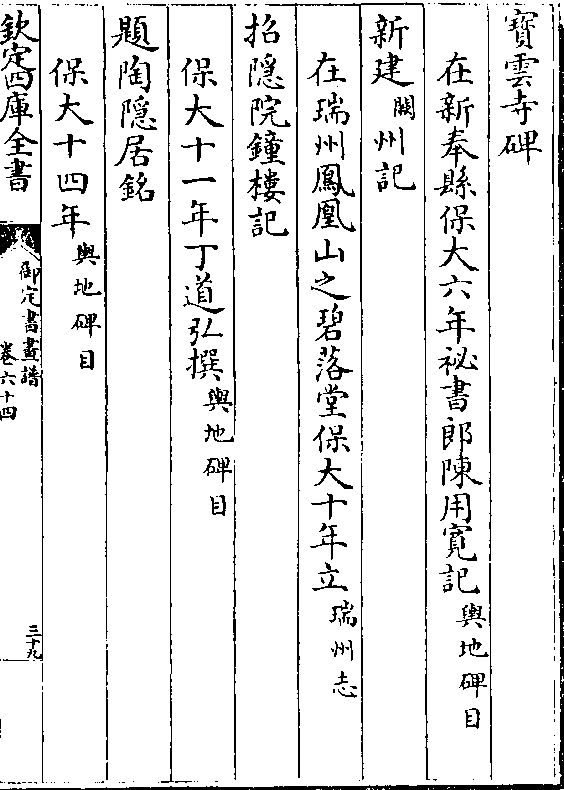 寳雲寺碑
在新奉縣保大六年祕書郎陳用寛記輿地碑目
新建闕州記
在瑞州鳳凰山之碧落堂保大十年立瑞州志
招隱院鐘樓記
保大十一年丁道弘撰輿地碑目
題陶隱居銘
保大十四年輿地碑目
欽定四庫全書
御定書畫譜
卷六十四
三十九